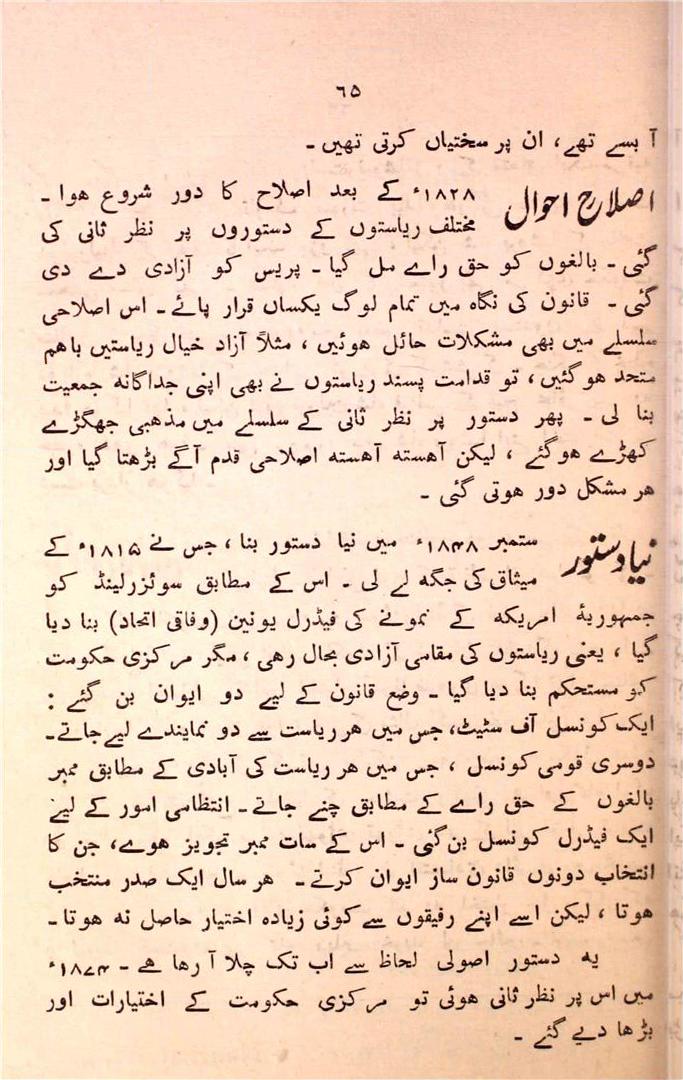 ۶۵
آ بسے تھے، ان پر سختیاں کرتی تھیں ۔
اصلاح احوال
۱۸۲۸ء کے بعد اصلاح کا دور شروع ھوا ۔
مختلف ریاستوں کے دستوروں پر نظر ثانی کی
گئی ۔ بالغوں کو حق راے مل گیا ۔ پریس کو آزادی دے دی
گئی ۔ قانون کی نگاہ میں تمام لوگ یکساں قرار پائے ۔ اس اصلاحی
سلسلے میں بھی مشکلات حائل ھوئیں ، مثلاً آزاد خیال ریاستیں باھم
متحد ھو گئیں، تو قدامت پسند ریاستوں نے بھی اپنی جداگانہ جمعیت
بنا لی ۔ پھر دستور پر نظر ثانی کے سلسلے میں مذھبی جھگڑے
کھڑے ھوگئے ، لیکن آھستہ آھستہ اصلاحی قدم آگے بڑھتا گیا اور
ھر مشکل دور ھوتی گئی ۔
نیا دستور
ستمبر ۱۸۴۸ء میں نیا دستور بنا ، جس نے ۱۸۱۵ء کے
میثاق کی جگہ لے لی ۔ اس کے مطابق سوئزرلینڈ کو
جمہوریۂ امریکہ کے نمونے کی فیڈرل یونین (وفاقی اتحاد) بنا دیا
گیا ، یعنی ریاستوں کی مقامی آزادی بحال رھی ، مگر مرکزی حکومت
کو مستحکم بنا دیا گیا ۔ وضع قانون کے لیے دو ایوان بن گئے :
ایک کونسل آف سٹیٹ، جس میں ھر ریاست سے دو نمایندے لیے جاتے۔
دوسری قومی کونسل ، جس میں ھر ریاست کی آبادی کے مطابق ممبر
بالغوں کے حق راے کے مطابق چنے جاتے ۔ انتظامی امور کے لیے
ایک فیڈرل کونسل بن گئی ۔ اس کے سات ممبر تجویز ھوے، جن کا
انتخاب دونوں قانون ساز ایوان کرتے ۔ ھر سال ایک صدر منتخب
ھوتا ، لیکن اسے اپنے رفیقوں سے کوئی زیادہ اختیار حاصل نہ ھوتا ۔
یہ دستور اصولی لحاظ سے اب تک چلا آ رھا ھے ۔ ۱۸۷۴ء
میں اس پر نظر ثانی ھوئی تو مرکزی حکومت کے اختیارات اور
بڑھا دیے گئے ۔